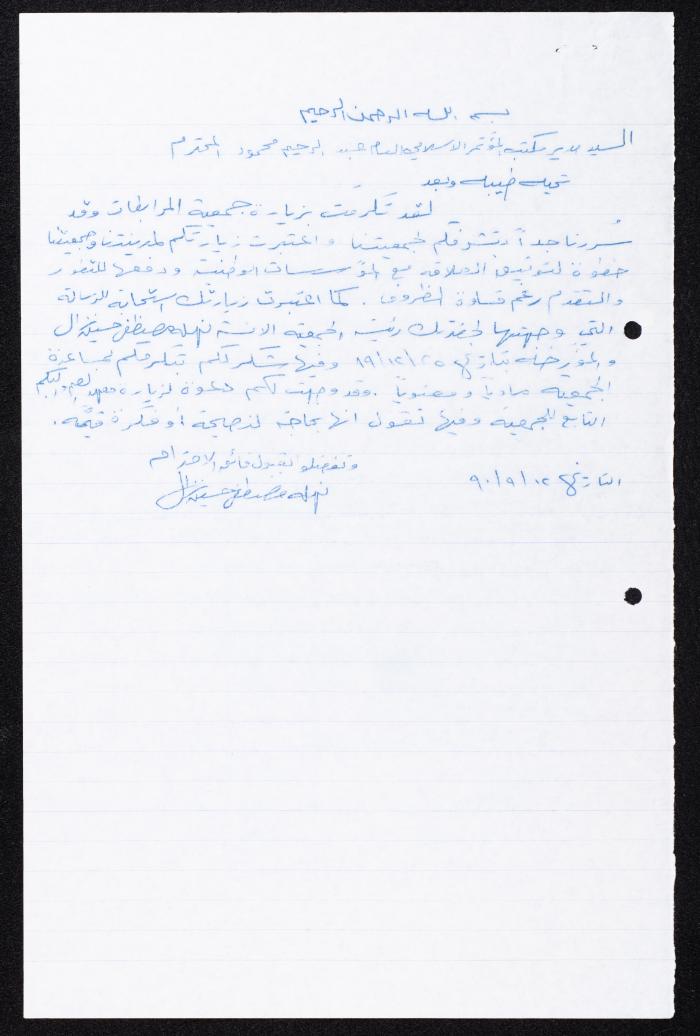 بسم الله الرحمن الرحيم
السيد مدير مكتب المؤتمر الاسلامي العام عبد الرحيم محمود المحترم
تحية طيبة وبعد
لقد تكرمت بزيارة جمعية المرابطات وقد
سُررنا جداً بتشرفكم لجمعيتنا واعتبرت زيارتكم لمدينتنا وجمعيتنا
خطوة لتوثيق العلاقة مع المؤسسات الوطنية ودفعها للتطور
والتقدم رغم قساوة الظروف. كما اعتبرت زيارتك استجابة للرسالة
التي وجهتها لحضرتك رئيسة الجمعية الآنسة نهله مصطفى حسين
والمؤرخة بتاريخ ٨٩/١٢/٢٥ وفيها شكر لكم تكرمكم لمساعدة
الجمعية مادياً ومعنوياً. وقد وجهت لكم دعوة لزيارة معهد
التابع للجمعية وفيها تقول انها بحاجة لنصيحة أو فكرة قيّمة.
وتفضلوا بقبول فائق الاحترام
التاريخ ٩٠/٩/١٢
نهله مصطفى حسين